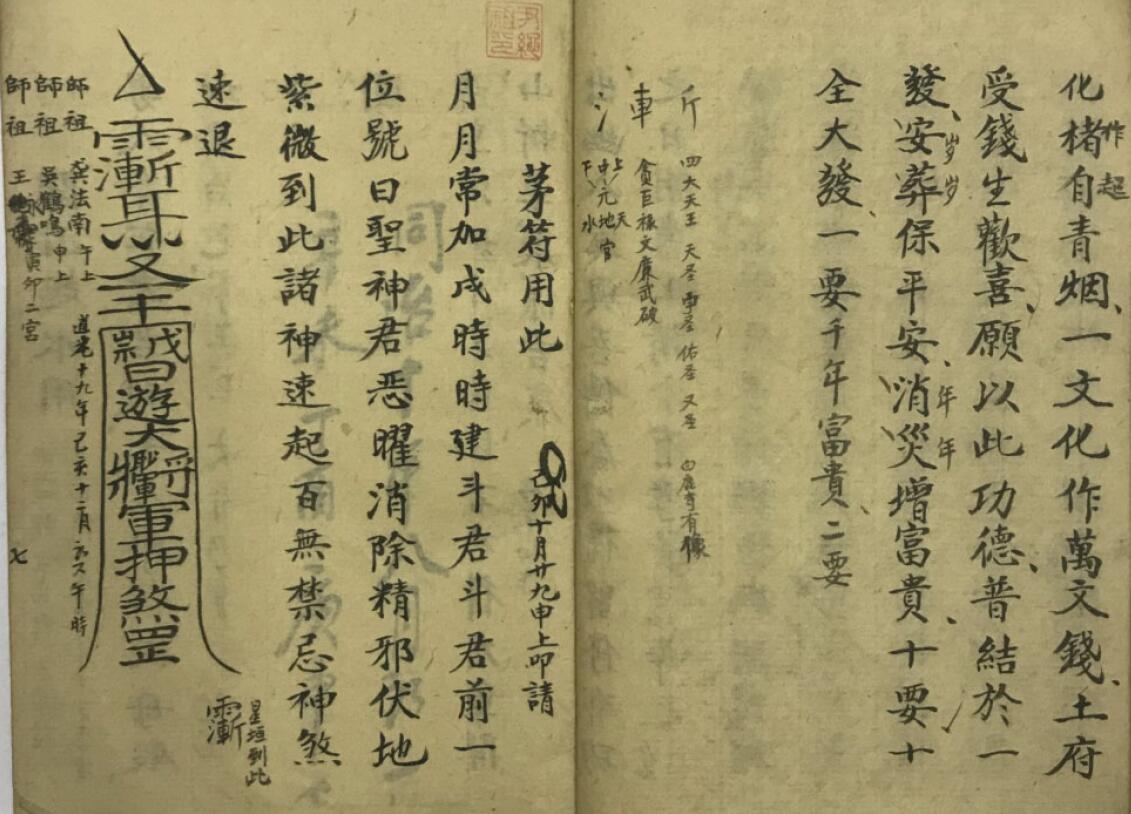 化楮自青烟、一文化作萬文錢、土府
作起
受錢生歡喜、願以此功德、普結於一
發、安葬保平安、消災增富貴、十要十
岁岁
年年
全大發、一要千年富貴、二要
斤 四大天王
車 貪巨祿文廉武破
氵 上中下元 天地水官
茅符用此
己卯十月廿九申上卯請
月月常加戌時時建斗君斗君前一
位號曰聖神君惡曜消除精邪伏地
紫微到此諸神速起百無禁忌神煞
速退
星垣到此
日遊大將軍押煞罡
師祖 龔法南 午上
師祖 吳鶴鳴 申上
師祖 王 寅卯二宮
道光十九年己亥十二月 午時